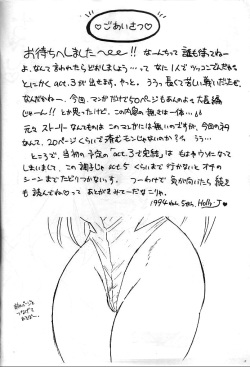 ♡ごあいさつ♡
お待ちへしましたへee!! なーんって 誰も待ってねー
よ。なんて言われたらどおしましょう…って なに1人で
とにかく act.3 が出ます。やっと。ううっ 長くて苦しい
なんだかねー、今回、マンガだけで50ページもあんのよォ 大長編
じゃーん!! とか思ったけど、この内容の無さは一体…
元々 ストーリーなんてものは このマンガには無いのですが、今回の
なんて、20ページくらいで済むモンじゃないのか??ゥ ううっ…
ところで、当初の予定の「act.3で完結」は もはやウソになって
しまいまして この調子じゃ act.5 くらいまで行かないと オチの
シーンまでたどりつかないす。 つーわけで 気が向いたら 続き
も読んでね♡って あとがきみてーだなこりゃ。
1994 Holly-J ♥